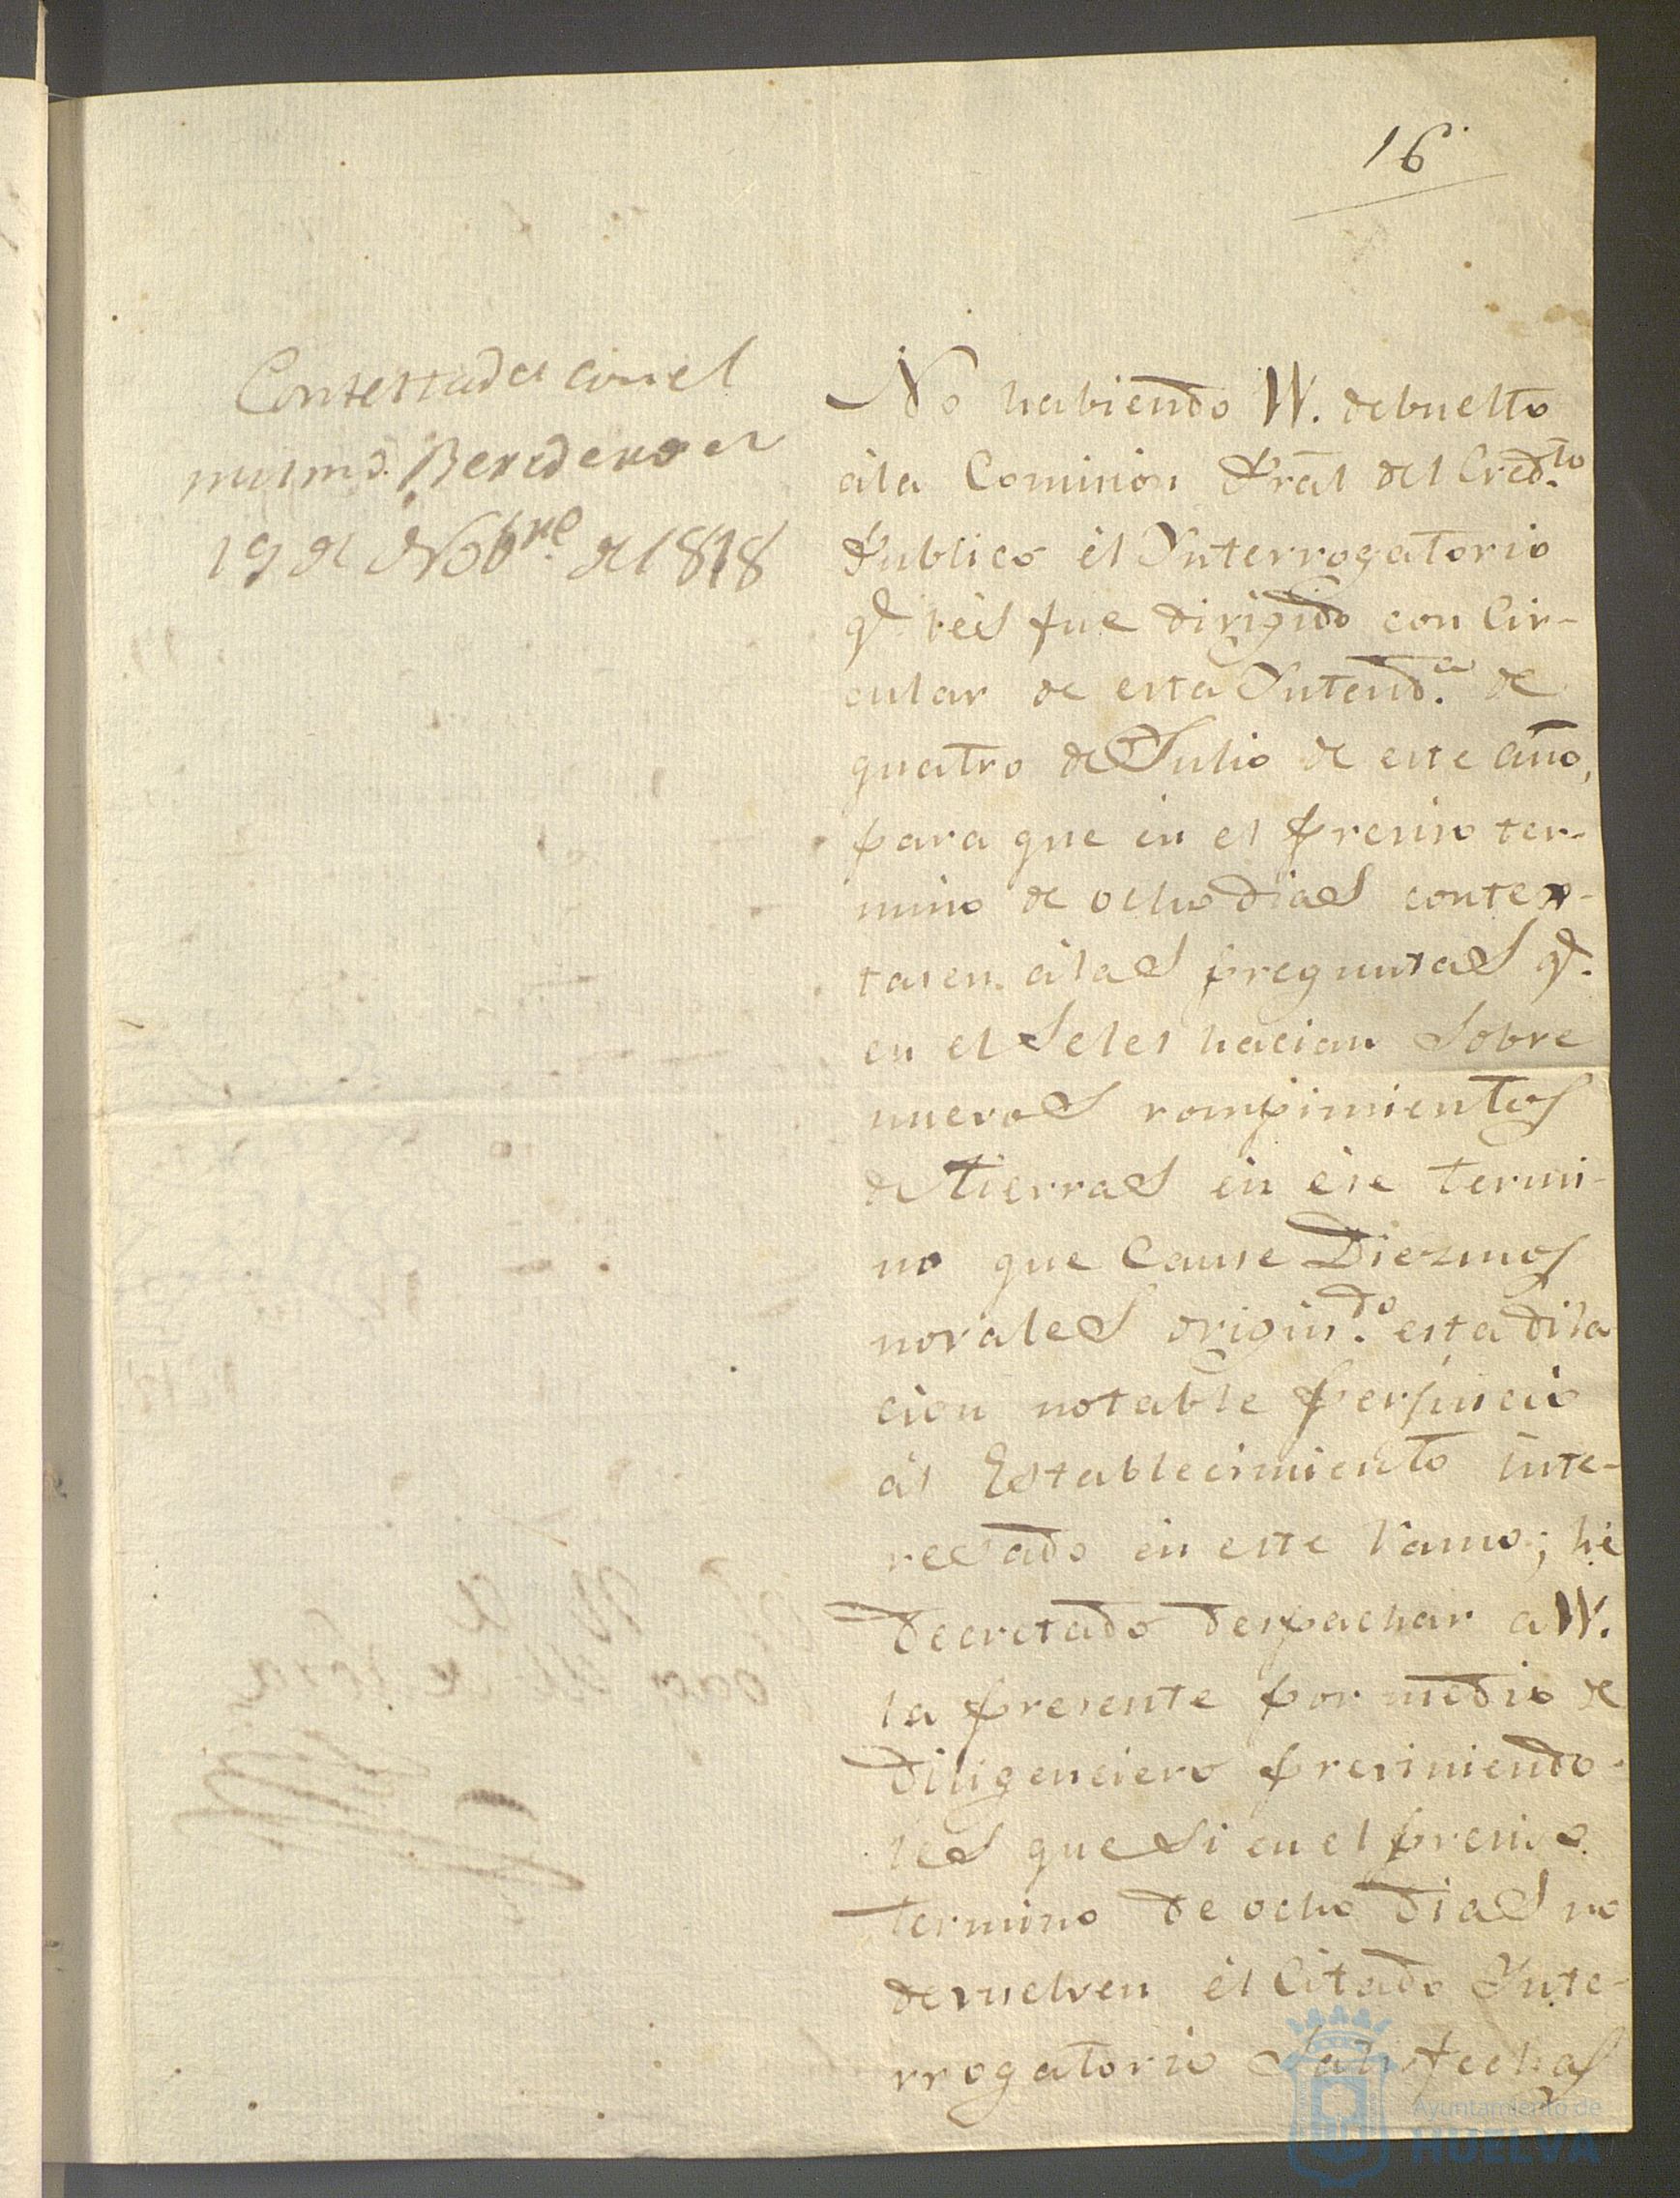 16
Contestada con el
mismo Beredero en
19 de Nobre. de 1818
No habiendo VV. debuelto
á la Comision Pral del Cred.to
Publico él Interrogatorio
q.e lés fue dirigido con Cir-
cular de esta Intend.a de
quatro de Julio de este año,
para que én el preciso ter-
mino de ocho dias contex-
tasen á las preguntas q.e
en el se les hacian sobre
nuevos rompimientos
de tierras én ése termi-
no que Cause Diezmos
novales origin.do esta dila
cion notable perjuicio
ál Establecimiento inte-
resado én este ramo; hé
decretado despachar a VV.
la presente por medio de
Diligenciero previniendo-
les que si en el preciso
termino de ocho dias no
devuelven él Citado Inte-
rrogatorio satisfechas
Ayuntamiento de
HUELVA